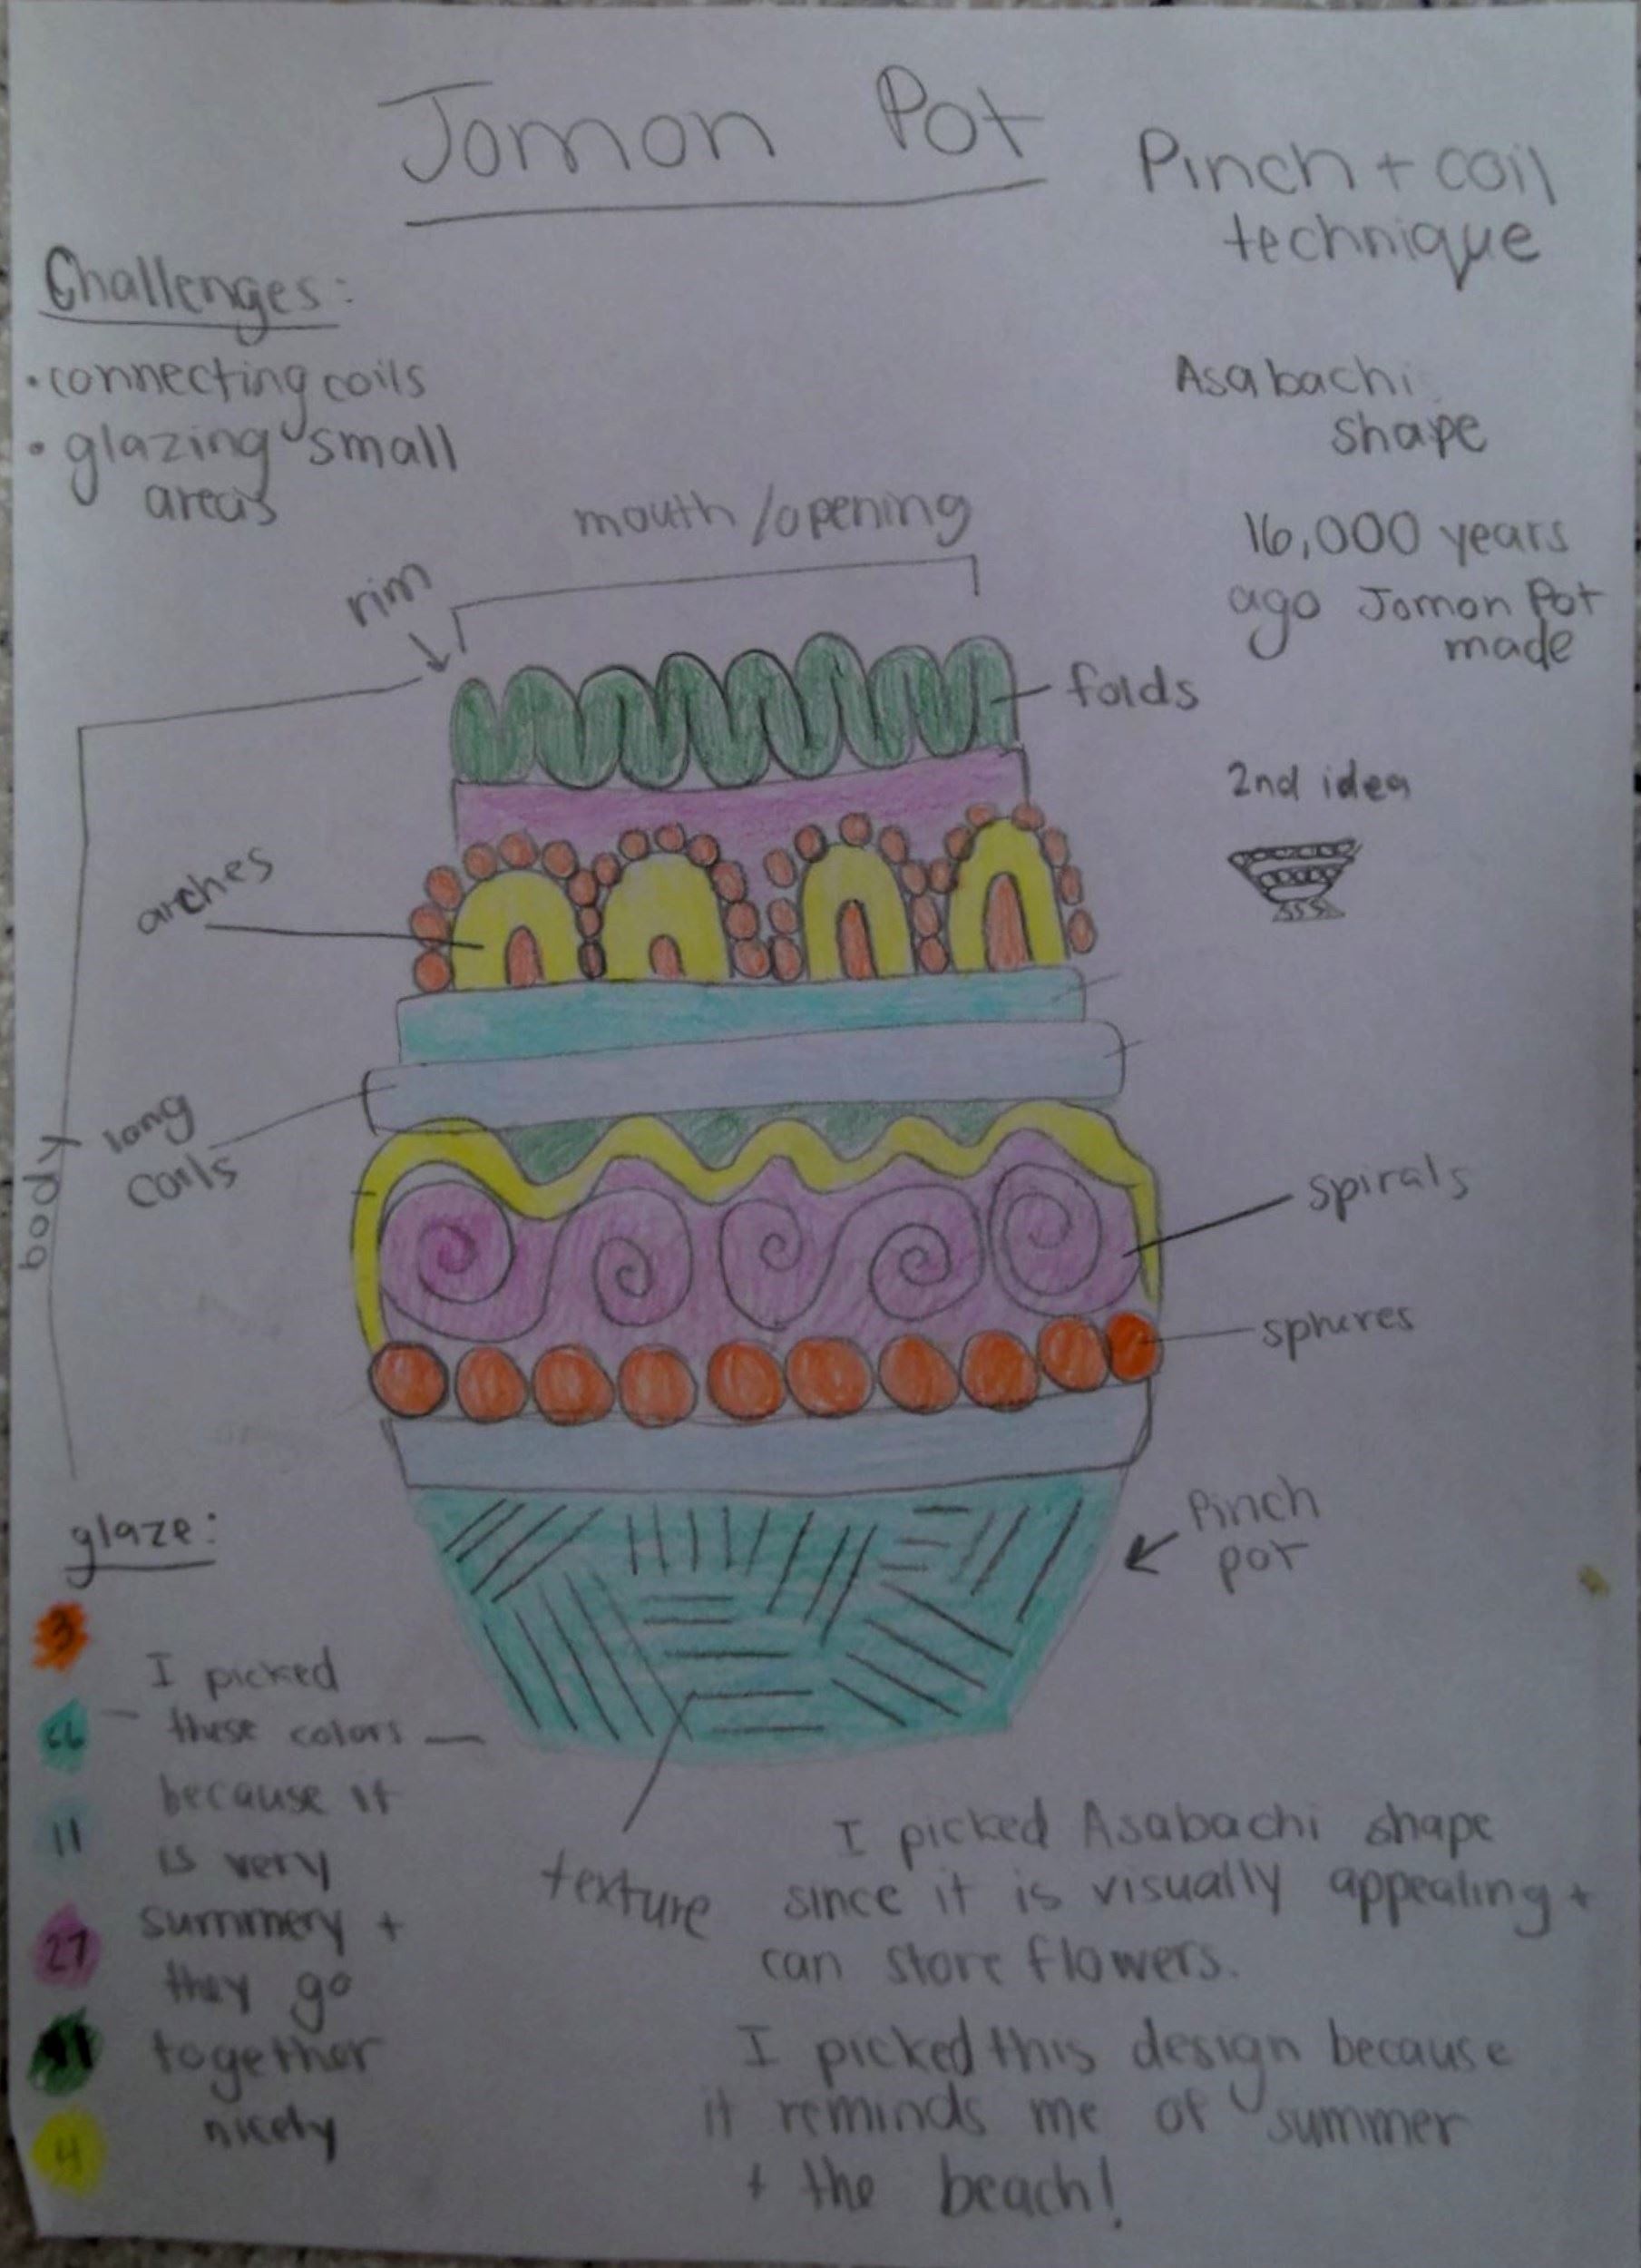 Jomon Pot
Pinch + coil
technique
Challenges:
• connecting coils
• glazing small
areas
Asabachi
shape
16,000 years
ago Jomon Pot
made
mouth/opening
rim
folds
2nd idea
arches
long
coils
body
spirals
spheres
Pinch
pot
glaze:
3
I picked
66
— these colors —
because it
11
is very
summery +
27
they go
together
nicely
4
texture
I picked Asabachi shape
since it is visually appealing +
can store flowers.
I picked this design because
it reminds me of summer
+ the beach!